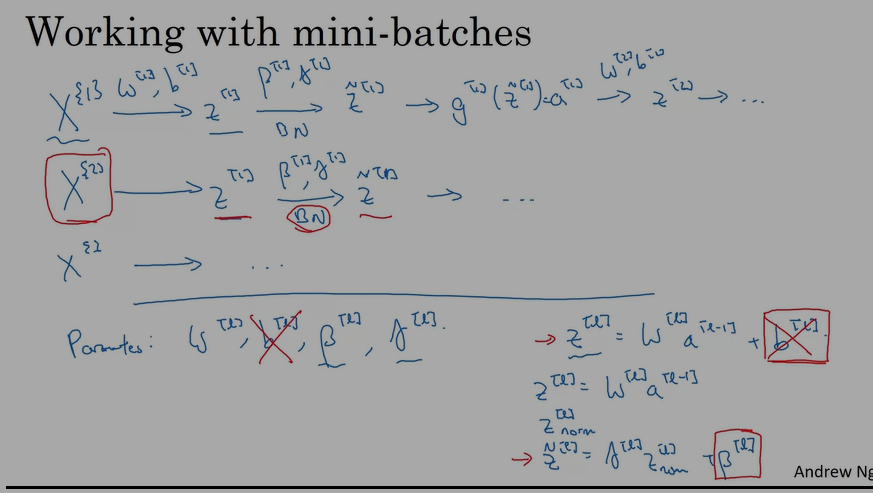 Working with mini-batches
X^{1} W^[1], b^[1] → z^[1] β^[1], γ^[1] → BN z̃^[1] → g^[1](z̃^[1]) = a^[1] W^[2], b^[2] → z^[2] → ...
X^{2} → z^[1] β^[1], γ^[1] → BN z̃^[1] → ...
X^{ } → ...
Parameters: W^[l], b^[l], β^[l], γ^[l].
→ z^[l] = W^[l] a^[l-1] + b^[l]
z^[l] = W^[l] a^[l-1]
z^[l]_norm
→ z̃^[l] = γ^[l] z^[l]_norm + β^[l]
Andrew Ng